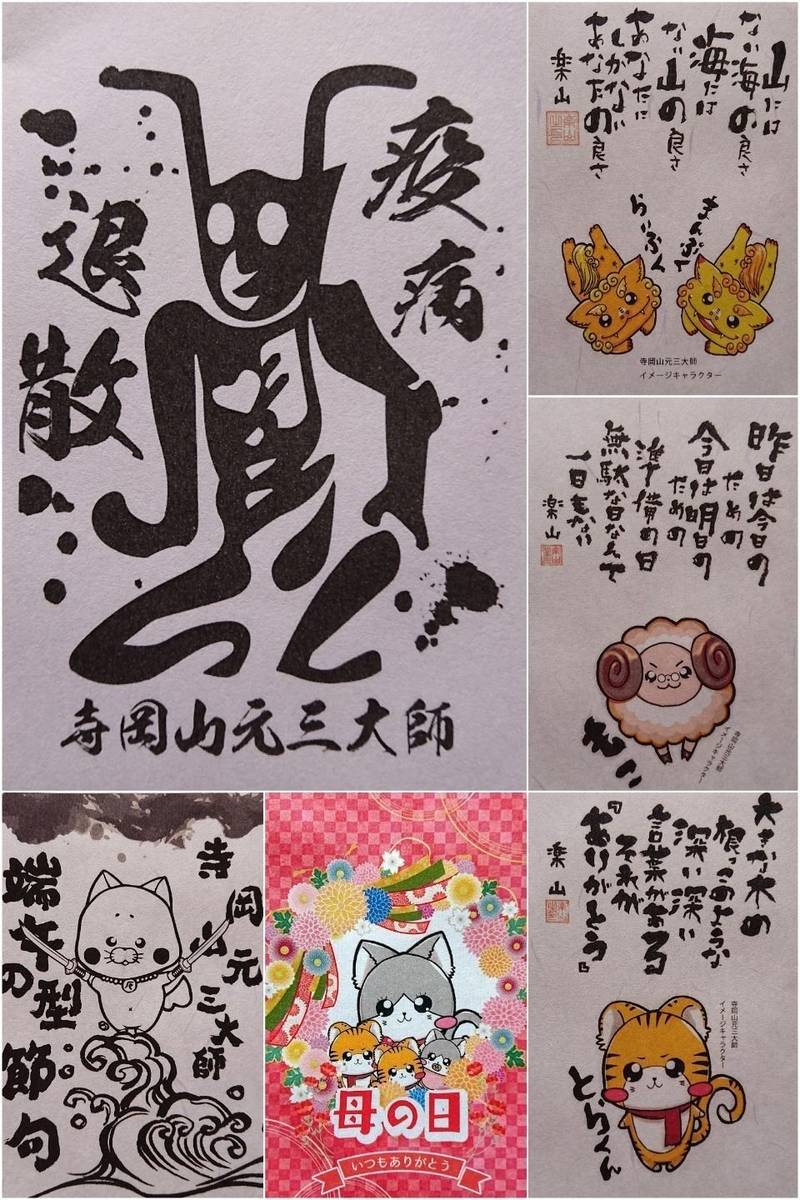 疫病
退散
寺岡山元三大師
山には
ない海の良さ
海には
ない山の良さ
あなたに
しかない
あなたの良さ
楽山
まんぷく
らいふく
寺岡山元三大師
イメージキャラクター
昨日は今日の
ための
今日は明日の
ための
準備の日
無駄な日なんて
一日もない
楽山
もこ
寺岡山元三大師
イメージキャラクター
寺岡山元三大師
端午の節句
母の日
いつもありがとう
大きな木の
根っこのような
深い深い
言葉がある
それが
『ありがとう』
楽山
寺岡山元三大師
イメージキャラクター
とらくん